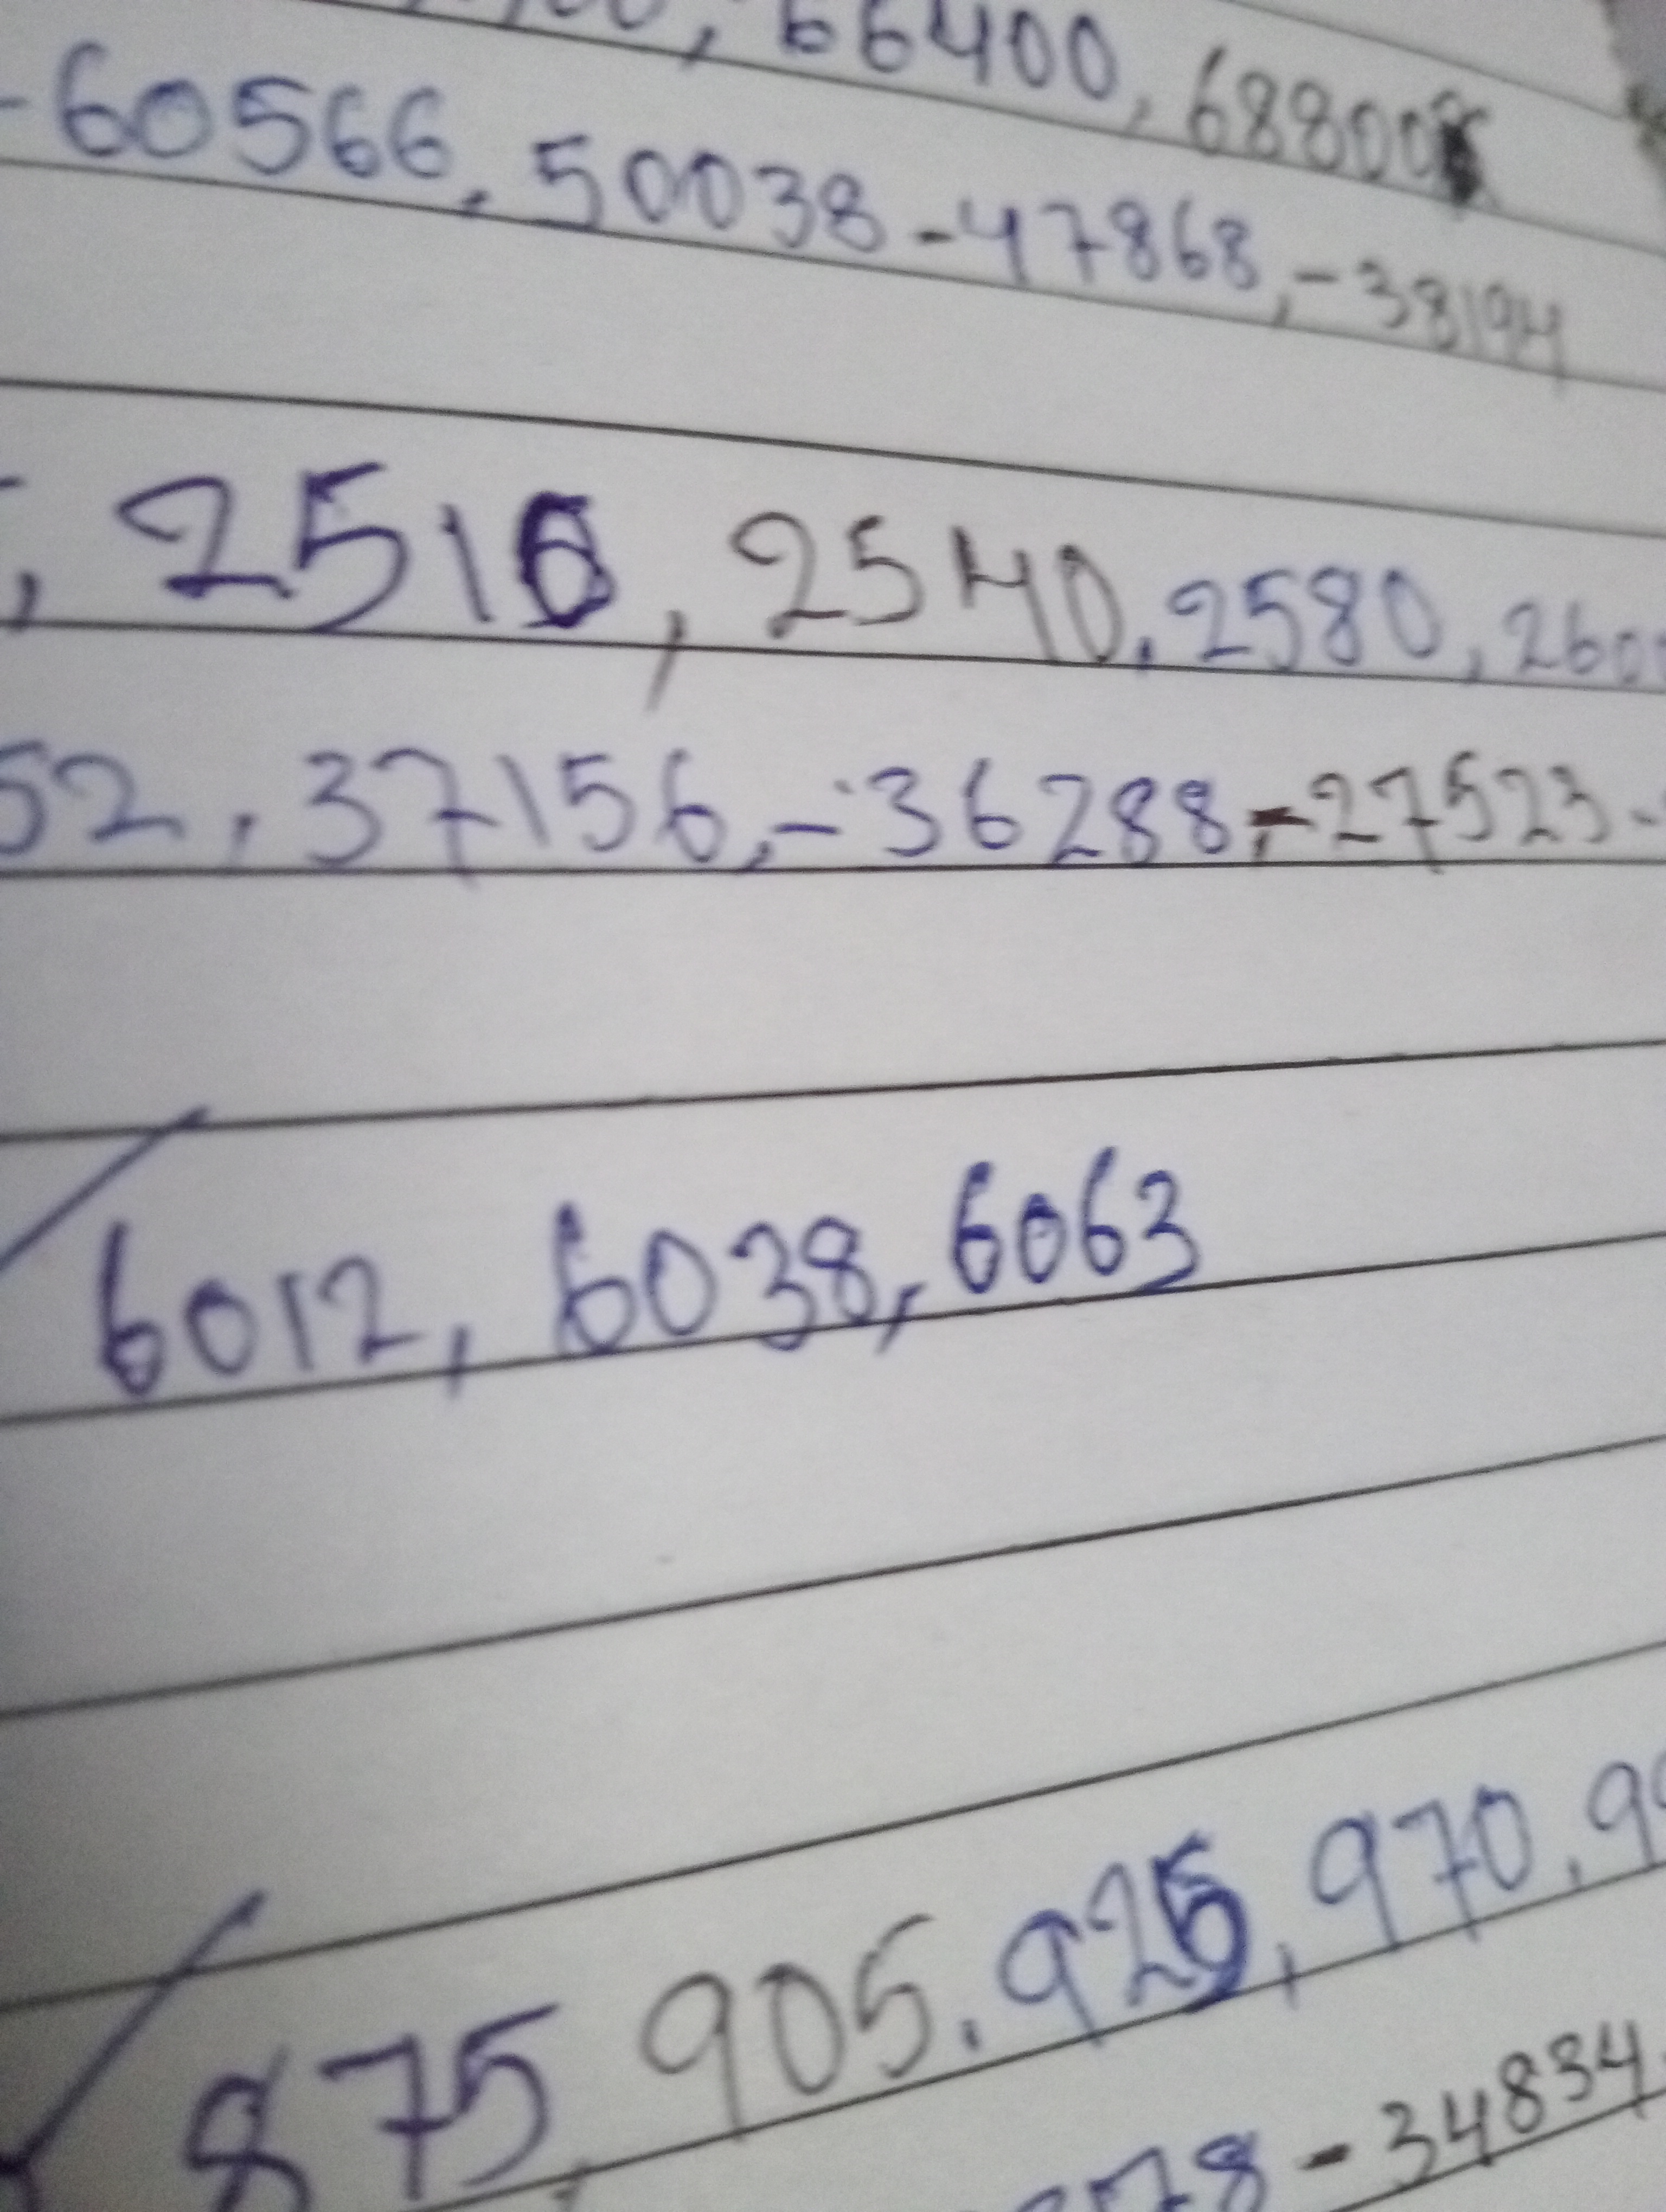 , 66400, 68800
-60566, 50038 -47868, -38194
, 2516, 2540, 2580, 260
52, 37156, -36288, -27523 -
6012, 6038, 6063
875, 905, 925, 970, 9
78 -34834